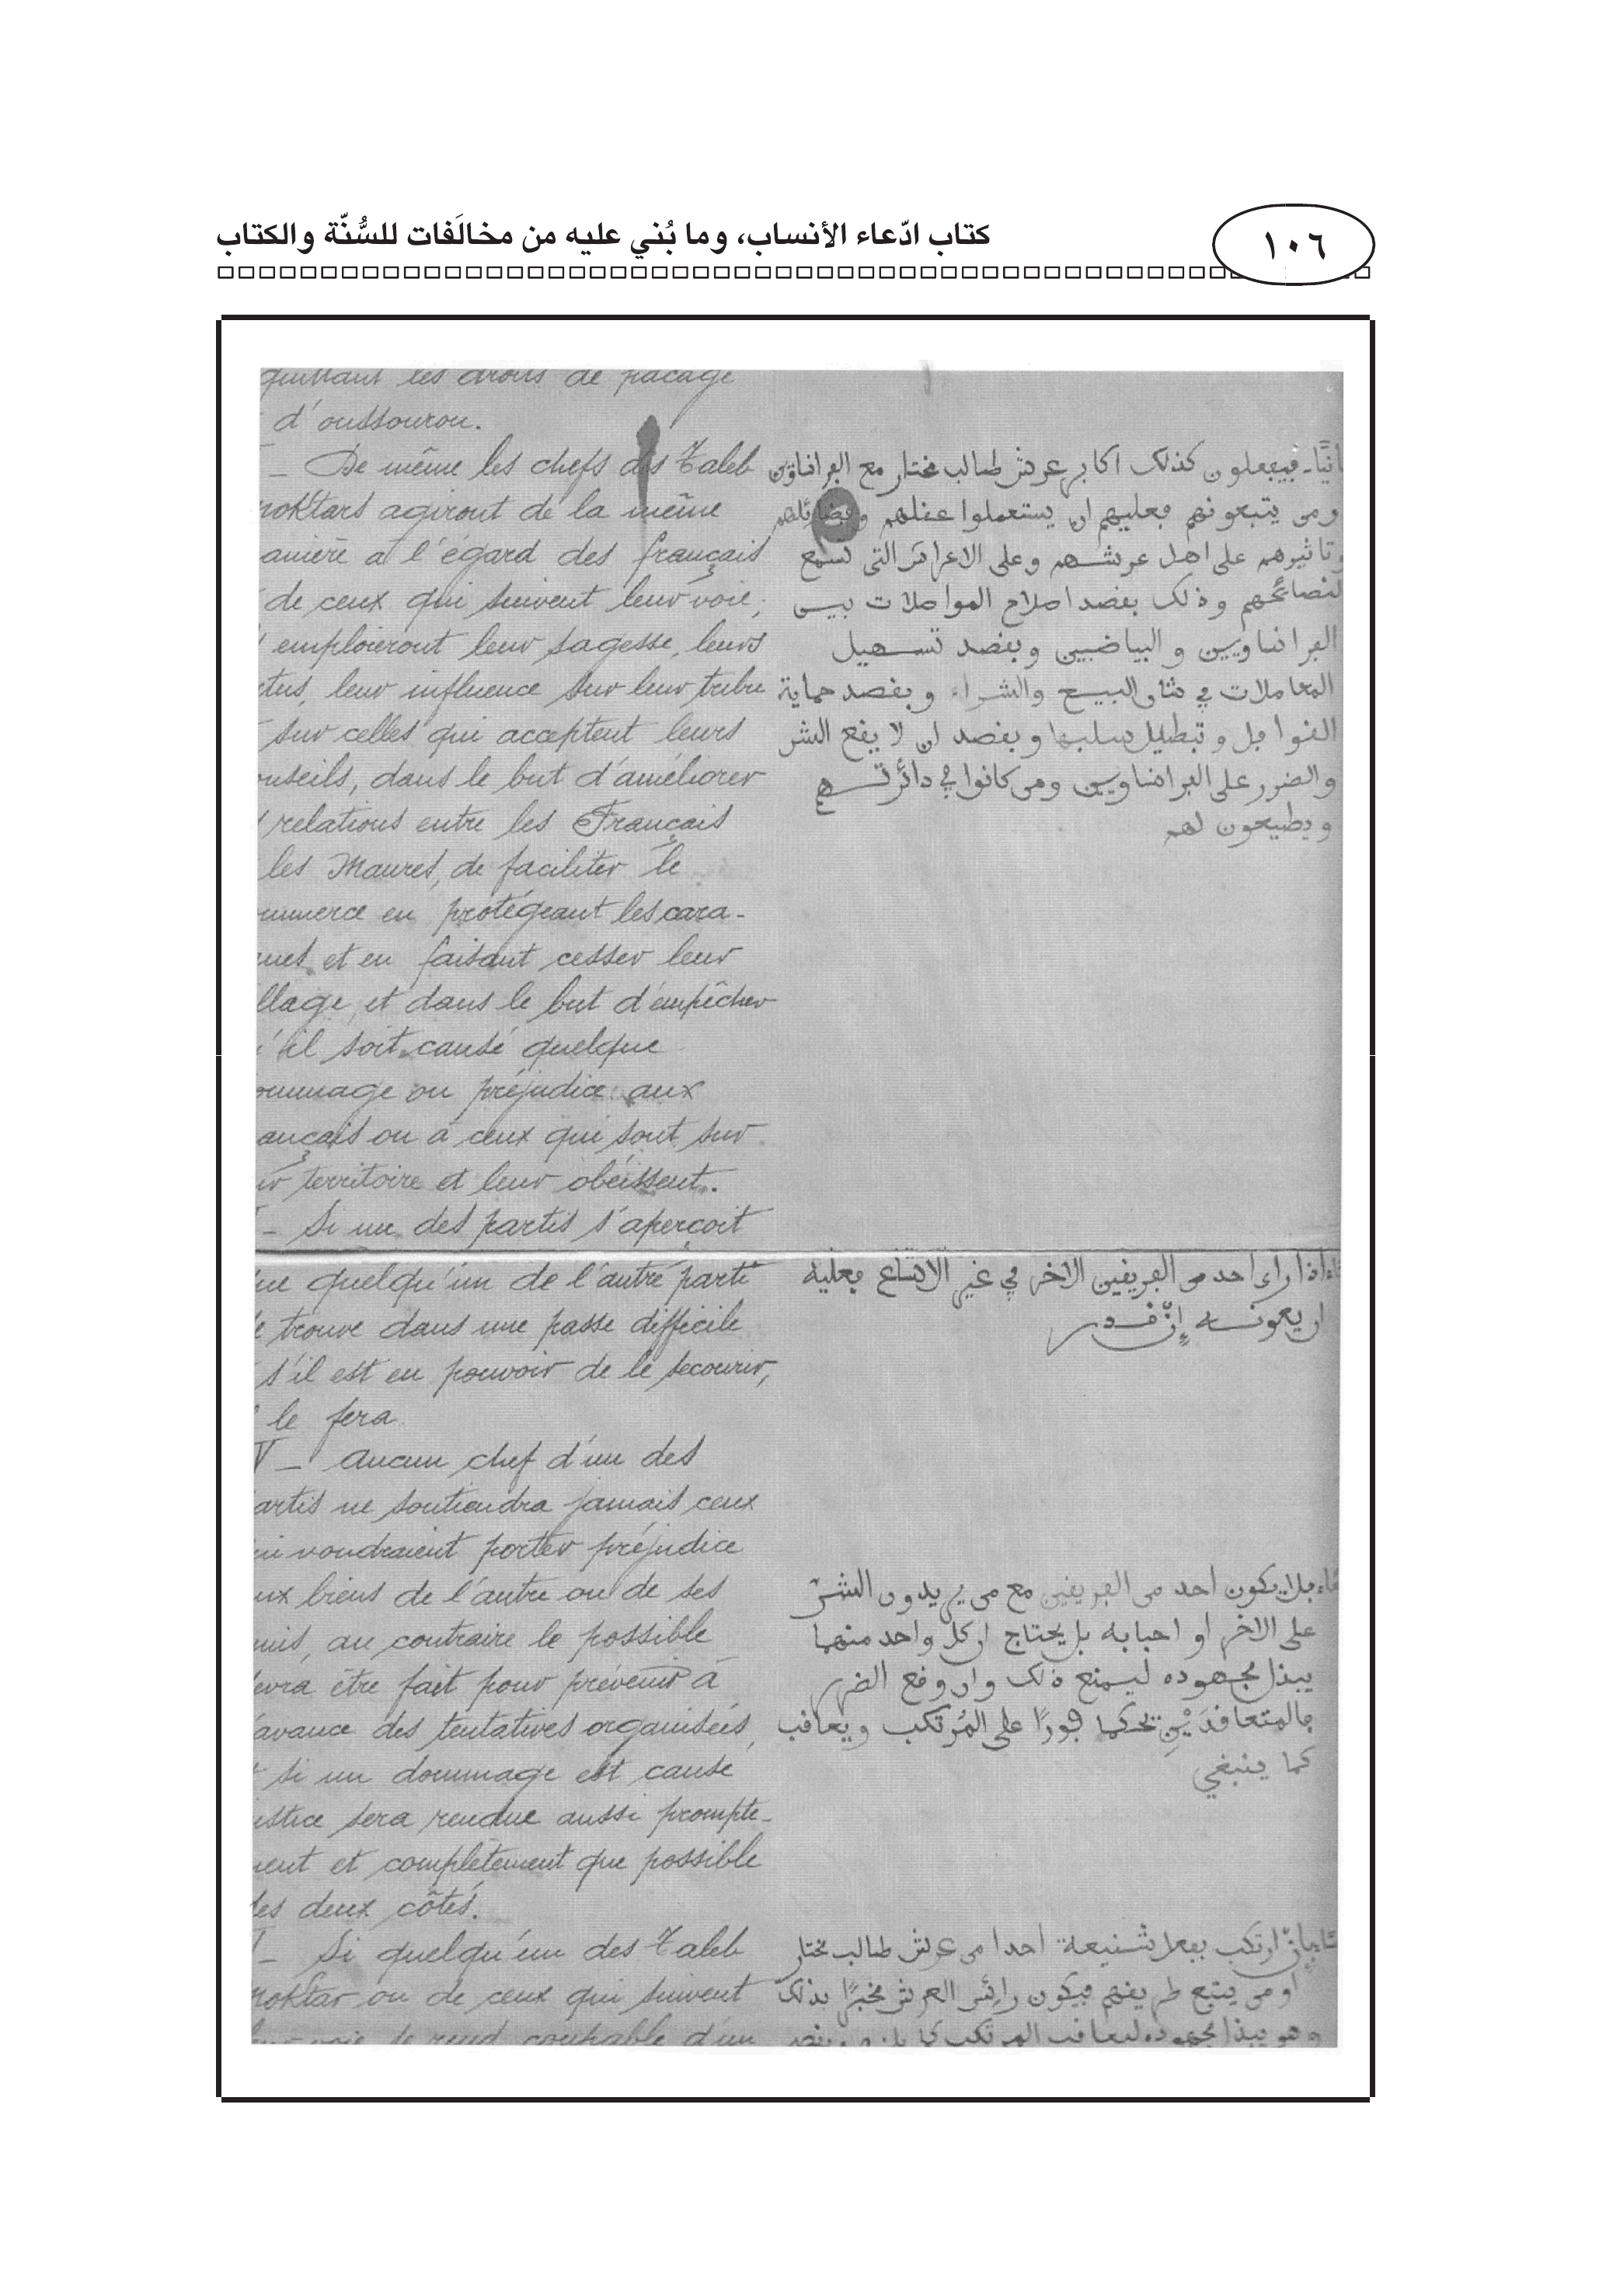 كتاب ادّعاء الأنساب، وما بُني عليه من مخالَفات للسُّنّة والكتاب
١٠٦
quittant les droits de pacage
d'oussourou.
_ De même les chefs des Taleb
moktars agiront de la même
manière à l'égard des français
de ceux qui suivent leur voie;
emploieront leur sagesse, leurs
ctus, leur influence sur leur tribu
sur celles qui acceptent leurs
onseils, dans le but d'améliorer
relations entre les Français
les Maures, de faciliter le
ommerce en protégeant les cara-
nes et en faisant cesser leur
llage, et dans le but d'empêcher
'il soit causé quelque
ommage ou préjudice aux
ançais ou à ceux qui sont sur
ur territoire et leur obéissent.
_ Si un des partis s'aperçoit
ue quelqu'un de l'autre parti
e trouve dans une passe difficile
s'il est en pouvoir de le secourir,
le fera
V _ Aucun chef d'un des
artis ne soutiendra jamais ceux
ui voudraient porter préjudice
ux biens de l'autre ou de ses
mis, au contraire le possible
evra être fait pour prévenir à
avance des tentatives organisées,
si un dommage est causé
ustice sera rendue aussi prompte-
ment et complètement que possible
des deux côtés.
_ Si quelqu'un des Taleb
moktar ou de ceux qui suivent
leur voie se rend coupable d'un
انيًا ـ فيفعلون كذلك اكابر عرش طالب مختار مع الفرانساويين
ومن يتبعونهم فعليهم ان يستعملوا عقلهم وفضائلهم
وتاثيرهم على اهل عرشهم وعلى الاعراش التى تسمع
لنصائحهم وذلك بقصد اصلاح المواصلات بين
الفرانساويين والبياضيين وبقصد تسهيل
المعاملات في شان البيع والشراء وبقصد حماية
القوافل وتبطيل سلبها وبقصد ان لا يقع الشر
والضرر على الفرانساويين ومن كانوا في دائرتهم
ويطيعون لهم
اذا راى احد من الفريقين الاخر في غير الاتساع فعليه
ان يعونه إن قدر
فلا يكون احد من الفريقين مع من يريدون الشر
على الاخر او احبابه بل يحتاج ان كل واحد منهما
يبذل مجهوده ليمنع ذلك وان وقع الضرر
فالمتعاقدَيْنِ يحكما فورًا على المُرتكب ويعاقب
كما ينبغي
إن ارتكب بفعل شنيعة احدا من عرش طالب مختار
او من يتبع طريقهم فيكون رائس العرش مخبرًا بذلك
وهو يبذل مجهوده ليعاقب المرتكب كما